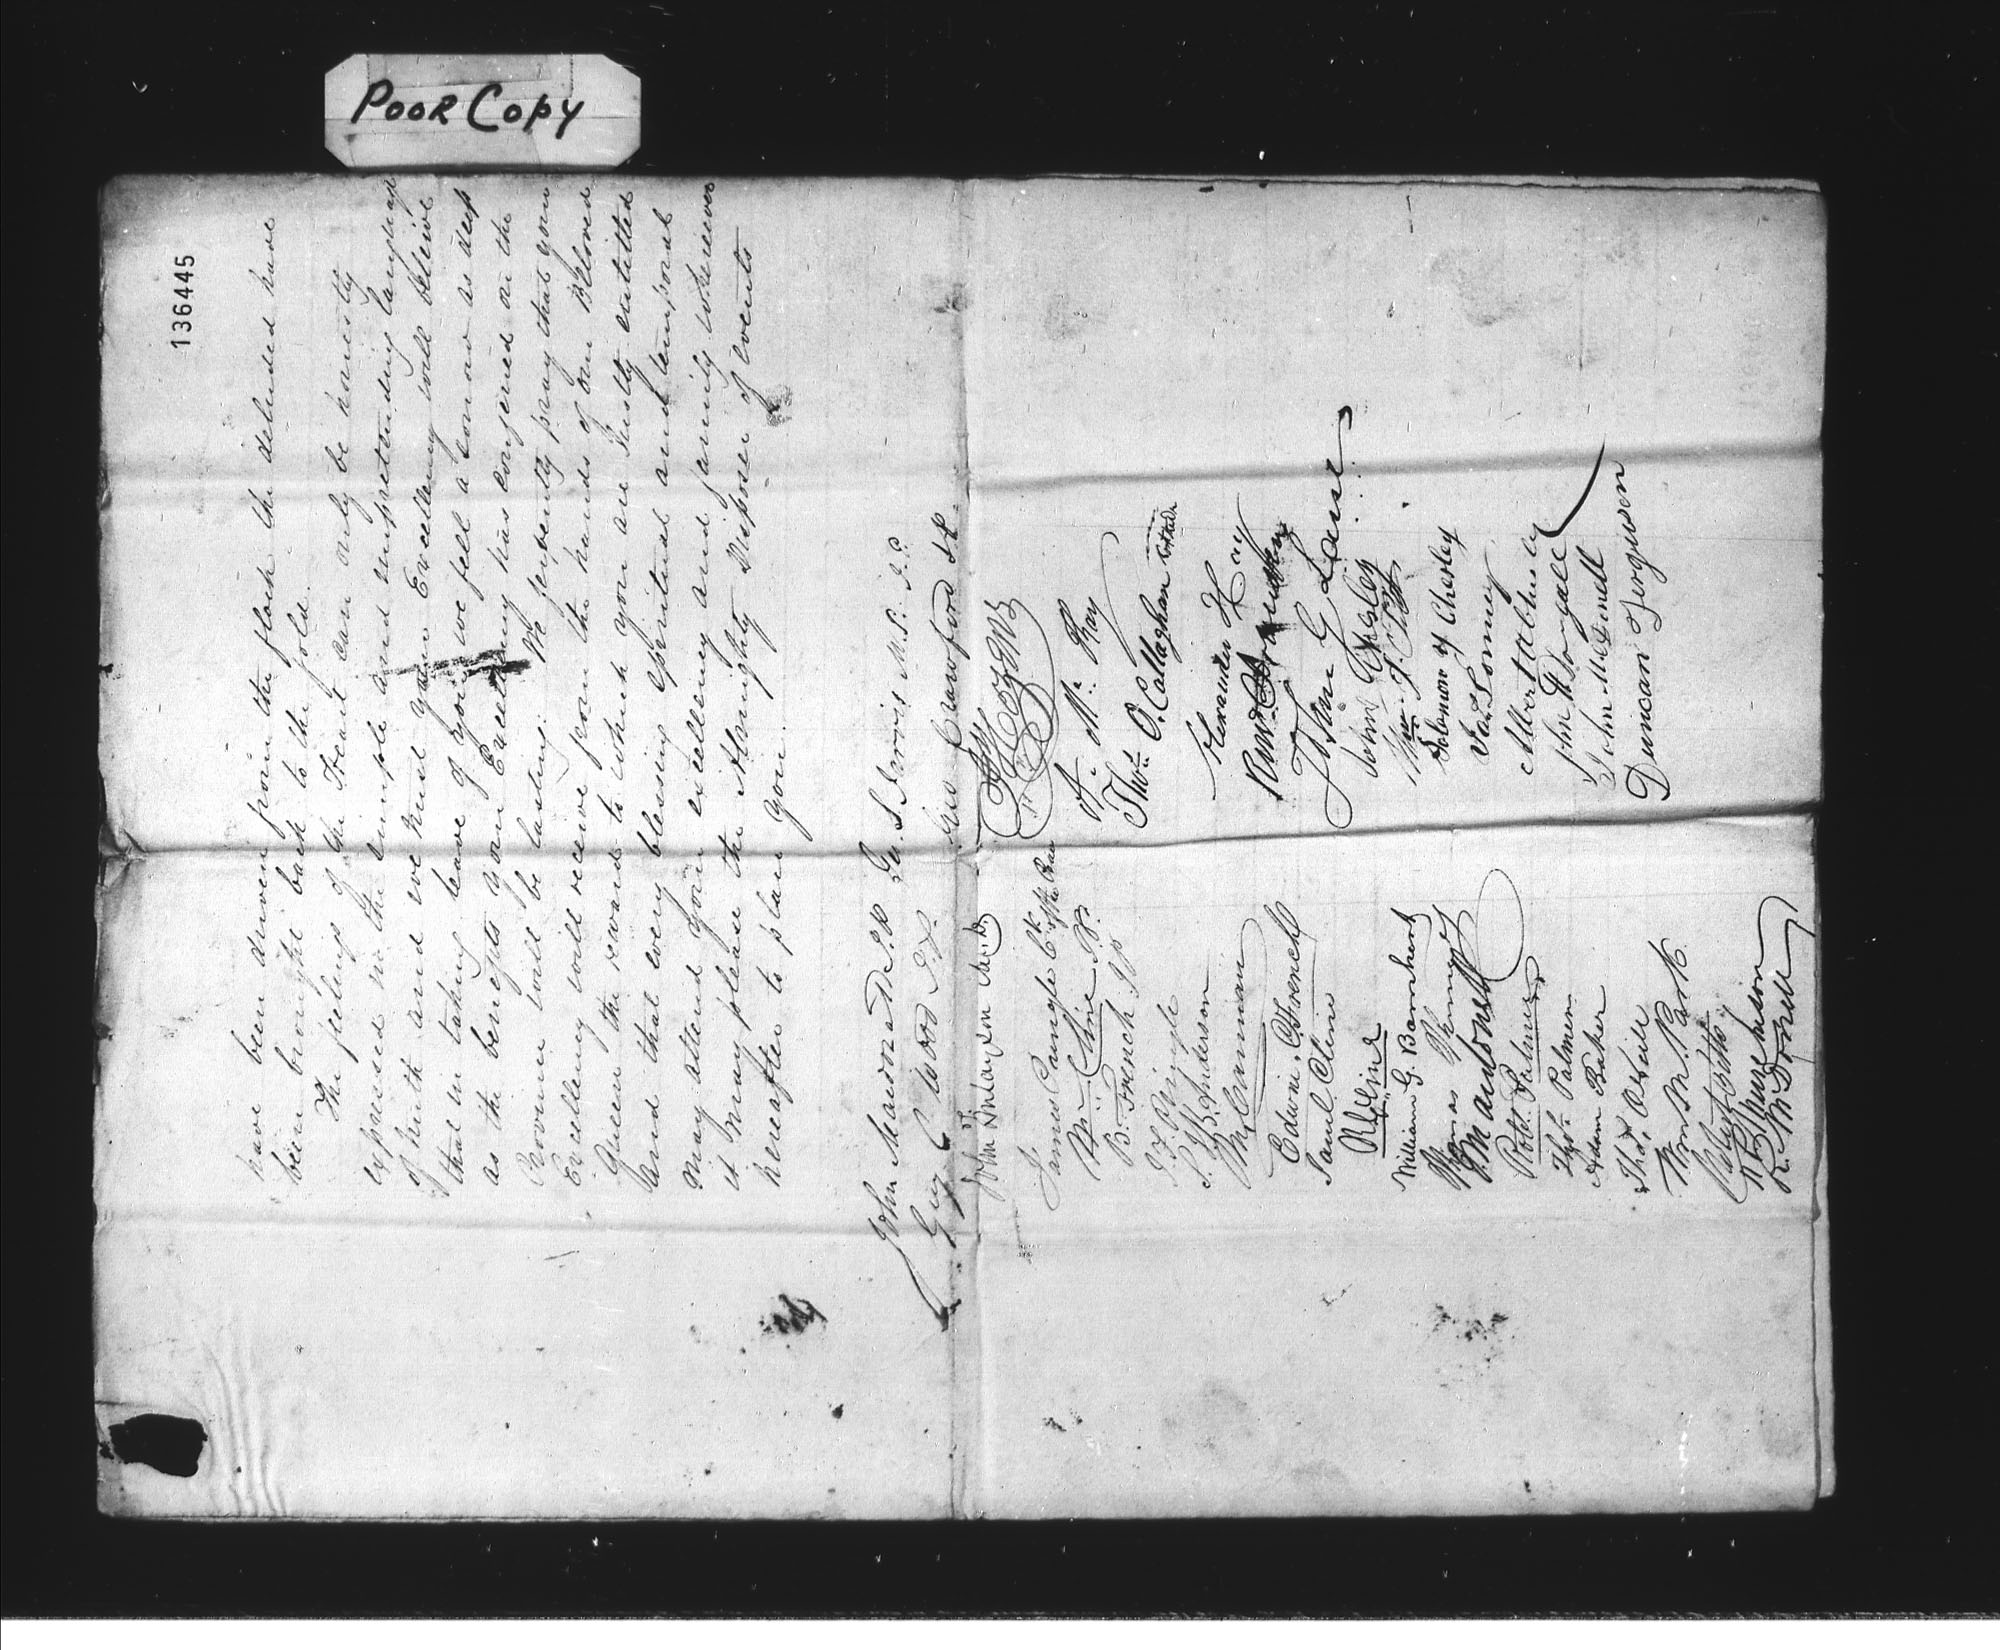 POOR COPY
136445
have been driven from the flock the deluded have
been brought back to the fold.
The feelings of the Heart can only be honestly
expressed in the simple and unpretending language
of truth and we trust your Excellency will believe
that in taking leave of you we feel a sorrow as deep
as the benefits your Excellency has conferred on the
Province will be lasting. We fervently pray that your
Excellency will receive from the hands of our Beloved
Queen the reward to which you are Justly entitled
and that every blessing spiritual and temporal
may attend your excellency and family wherever
it may please the Almighty Disposer of events
hereafter to place you.
John Macdonald J.P.
Geo. S. Jarvis M.P. J.P.
Guy C Wood J.P.
Geo Crawford J.P.
John Finlayson
James Pringle Ck
Wm Cline J.P.
A. Mc Kay
B. French J.P.
Thos O. Callaghan
J. F. Pringle
S. B. Anderson
Alexander Hay
M. Carman
Edwin C. French
John G Laine
Samuel Cline
John Chesley
R Cline
William G. Barnhart
Solomon Y Chesley
Jas Loney
Robt. Palmer
Palmer
Adam Baker
John McDougall
O'Neill
John McDonell
Wm M. Park
Duncan Ferguson
R. McDonell